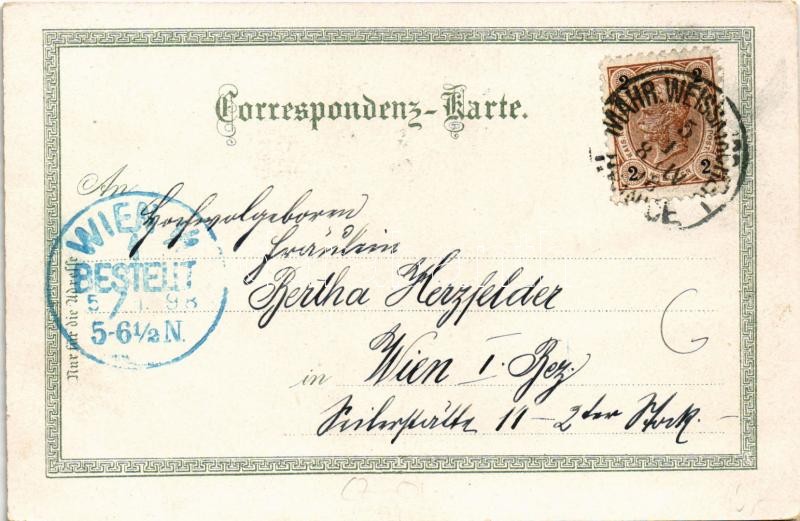 Correspondenz-Karte.
2 2
2 2
MÄHR. WEISSKIRCHEN
5
An
Hochwolgeboren
Fräulein
Bertha Herzfelder
in Wien I. Bez.
Seilerstätte 11 - 2ter Stock. -
WIEN
BESTELLT
5 1 98
5-6½N.
Nur für die Adresse